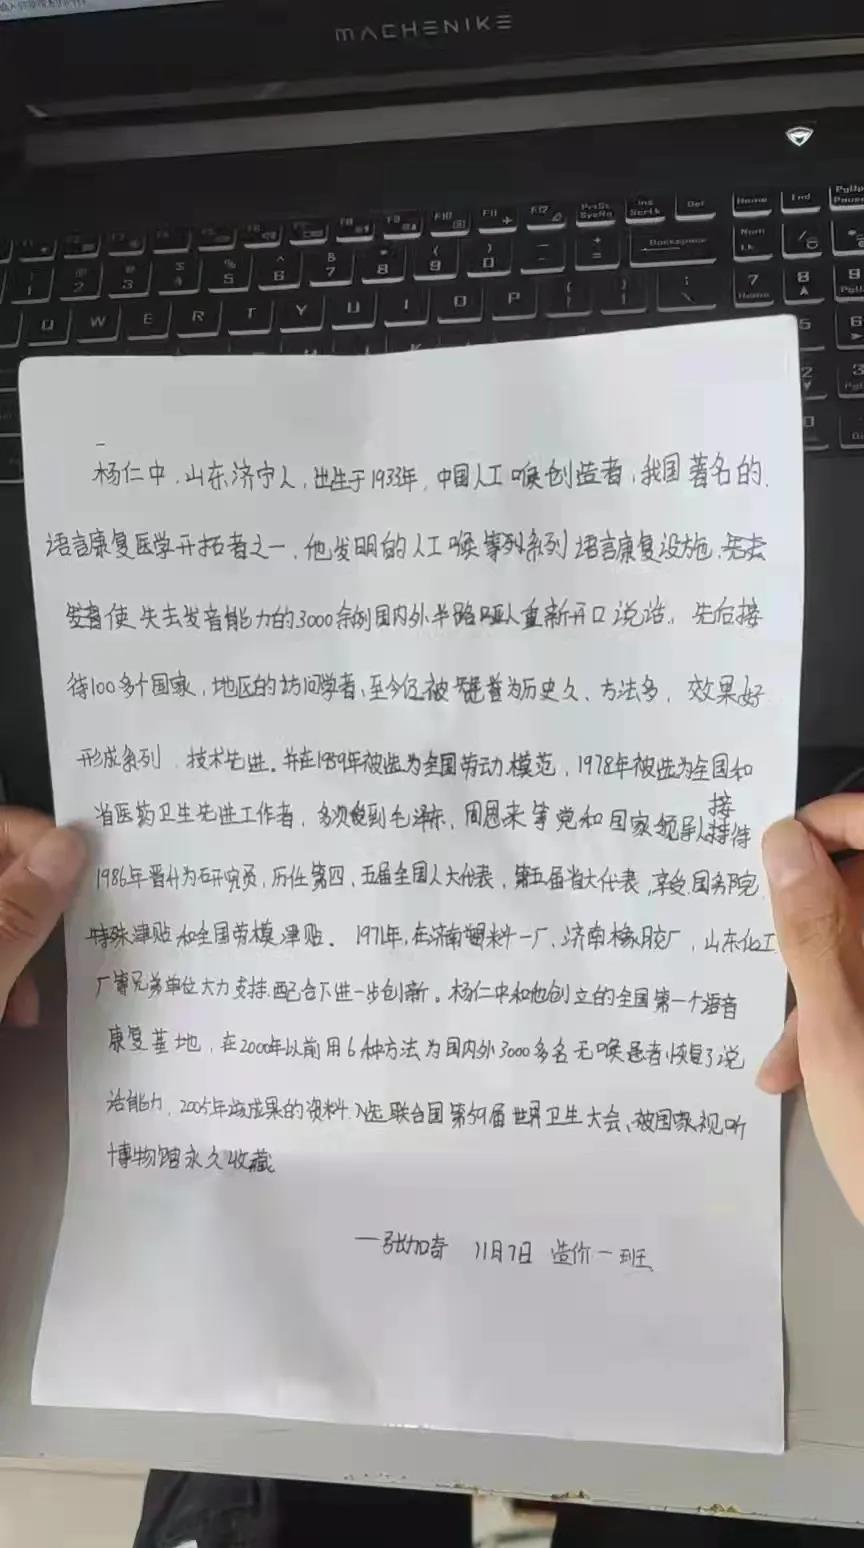 MACHENIKE
杨仁中,山东济宁人,出生于1933年,中国人工喉创造者,我国著名的
语言康复医学开拓者之一,他发明的人工喉等列系列语言康复设施,
使失去发音能力的3000余例国内外半路哑人重新开口说话,先后接
待100多个国家,地区的访问学者,至今仍被 为历史久、方法多,效果好
形成系列,技术先进。并在1959年被选为全国劳动模范,1978年被选为全国和
省医药卫生先进工作者,多次受到毛泽东,周恩来等党和国家领导人接待
1986年晋升为研究员,历任第四,五届全国人大代表,第五届省大代表,享受国务院
特殊津贴和全国劳模津贴。1971年,在济南塑料一厂,济南橡胶厂,山东化工
厂等兄弟单位大力支持配合下进一步创新。杨仁中和他创立的全国第一个语音
康复基地,在2000年以前用6种方法为国内外3000多名无喉患者恢复了说
话能力,2005年该成果的资料入选联合国第59届世界卫生大会、被国家视听
博物馆永久收藏
—张加奇 11月7日 造价一班